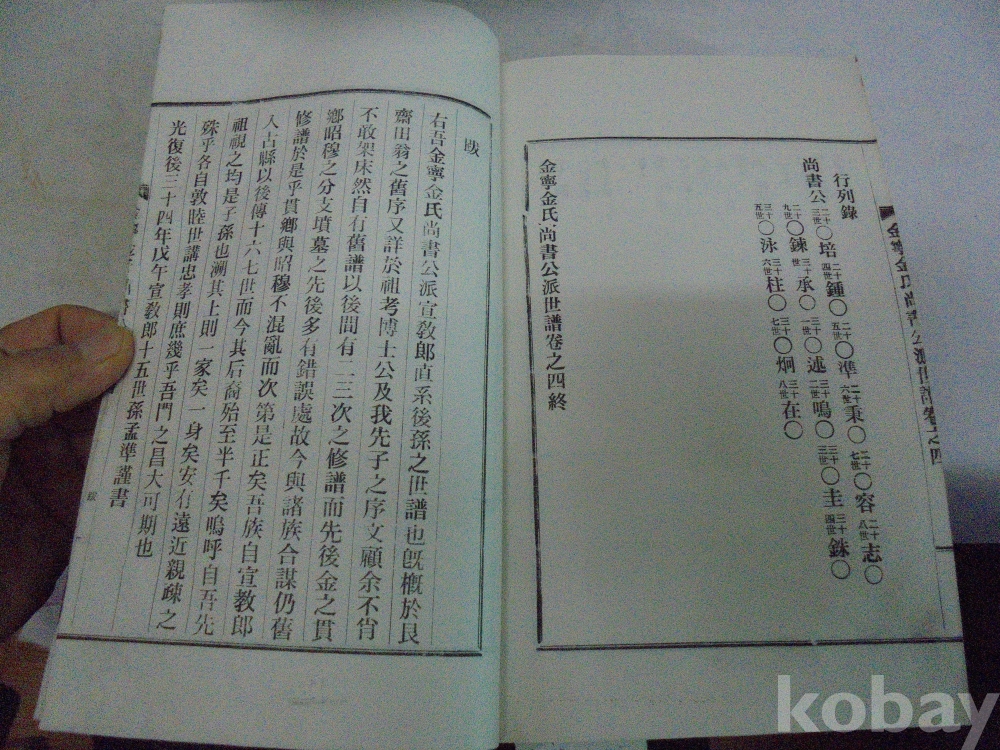 行列錄
尚書公 二十三世 培〇 二十四世 鍾〇 二十五世 〇準 二十六世 秉〇 二十七世 〇容 二十八世 志〇
二十九世 〇鍊 三十世 承〇 三十一世 〇述 三十二世 鳴〇 三十三世 〇圭 三十四世 銖〇
三十五世 〇泳 三十六世 柱〇 三十七世 〇炯 三十八世 在〇
金寧金氏尚書公派世譜卷之四終
金寧金氏尚書公派世譜卷之四
跋
右吾金寧金氏尚書公派宣敎郞直系後孫之世譜也旣槪於艮
齋田翁之舊序又詳於祖考博士公及我先子之序文顧余不肖
不敢架床然自有舊譜以後間有二三次之修譜而先後金之貫
鄕昭穆之分支墳墓之先後多有錯誤處故今與諸族合謀仍舊
修譜於是乎貫鄕與昭穆不混亂而次第是正矣吾族自宣教郎
入古縣以後傳十六七世而今其后裔殆至半千矣嗚呼自吾先
祖視之均是子孫也溯其上則一家矣一身矣安有遠近親疎之
殊乎各自敦睦世講忠孝則庶幾乎吾門之昌大可期也
光復後三十四年戊午宣敎郎十五世孫孟準謹書
跋
kobay